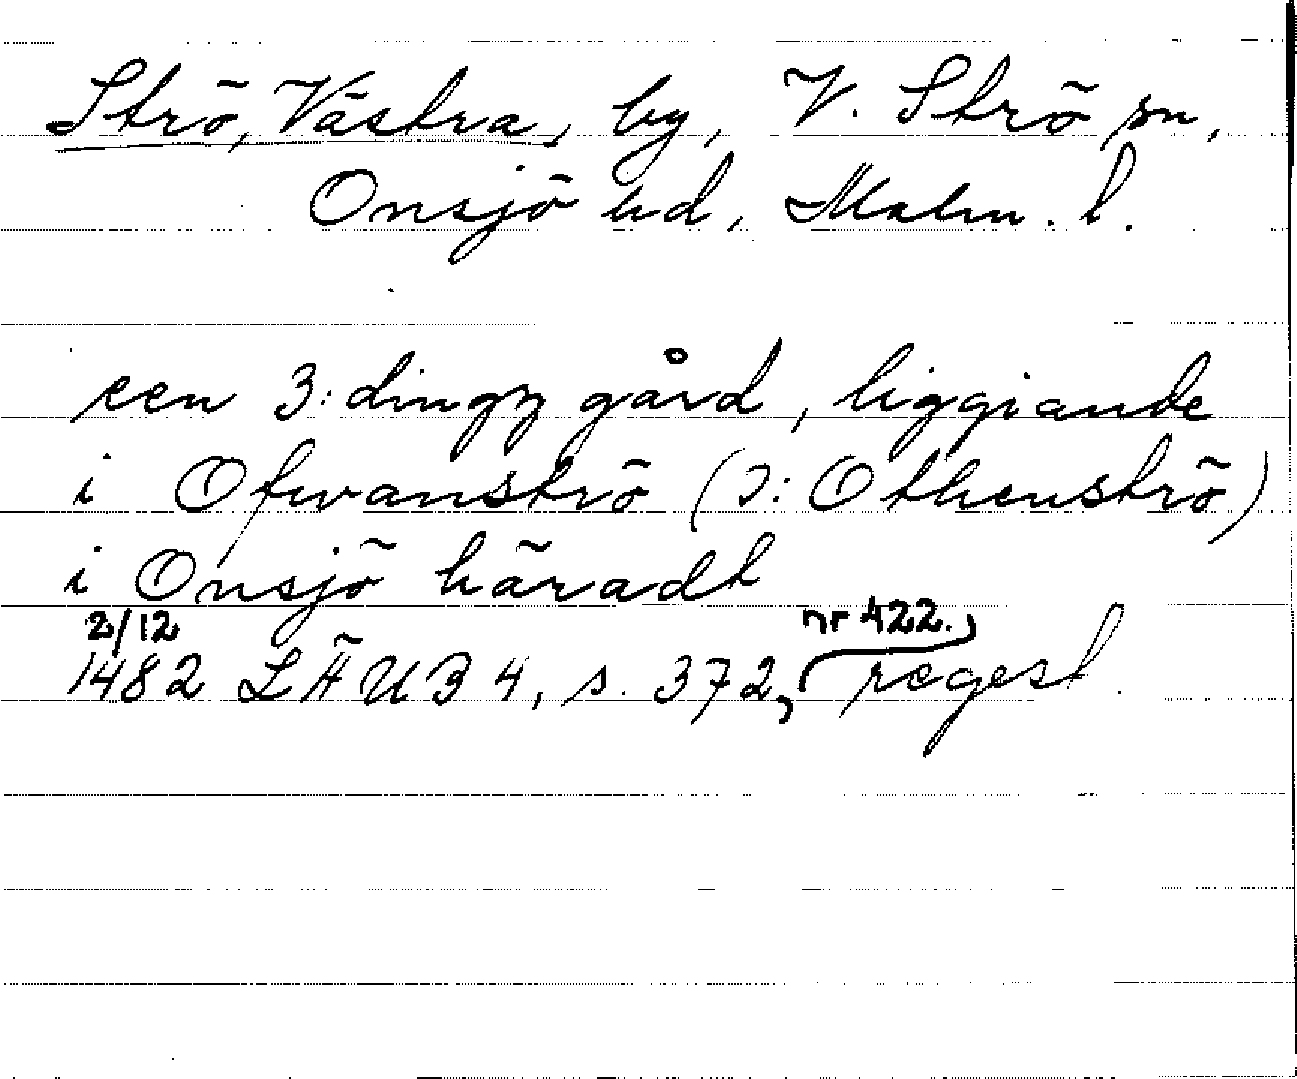 Strö, Västra, by, V. Strö sn,
Onsjö hd, Malm. l.
een 3: dingz gård, liggiande
i Ofwanströ (ɔ: Othenströ)
i Onsjö häradt
2/12 nr 422.,
1482 LÄUB 4, s. 372, regest.